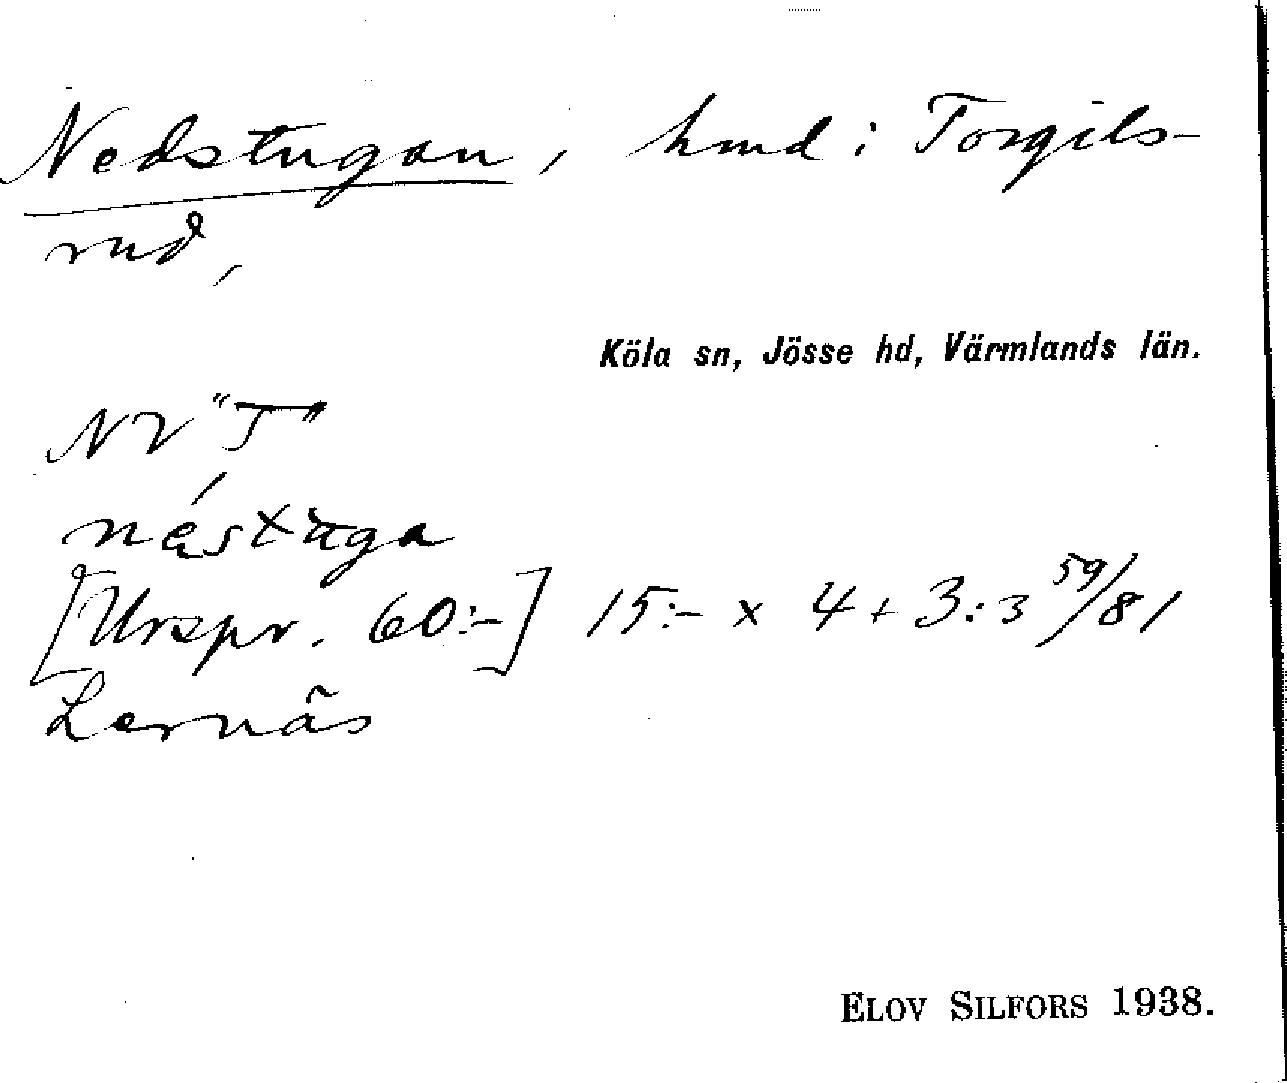 Nedstugan, hmd i Torgils-
rud,
Köla sn, Jösse hd, Värmlands län.
NV "T"
néstùga
[Urspr. 60:-] 15:- x 4 + 3:3 59/81
Lernäs
ELOV SILFORS 1938.